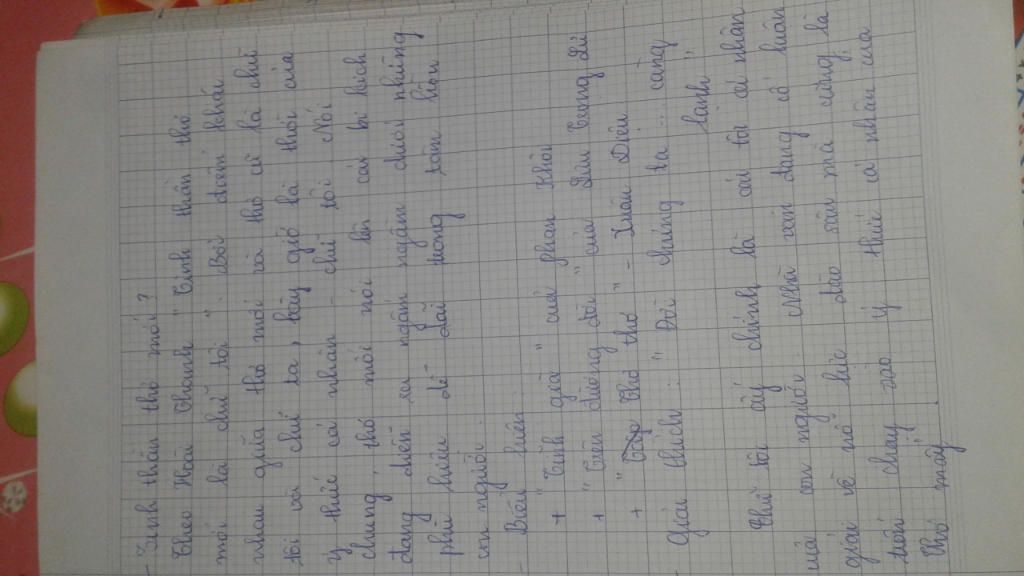 - Tinh thần thơ mới ?
Theo Hoài Thanh " Tinh thần thơ
mới là chữ tôi ". Bởi điểm khác
nhau giữa thơ mới và thơ cũ là chữ
tôi với chữ ta, bây giờ là thời của
ý thức cá nhân - chữ tôi. Nói
chung, thơ mới nói lên cái bi kịch
đang diễn ra ngấm ngầm dưới những
phù hiệu dễ dãi trong tâm hồn
con người.
- Biểu hiện:
+ " Tình già " của Phan Khôi
+ " Tiễn đường đời " của Lưu Trọng Lư
+ " Thơ thơ " - Xuân Diệu
Giải thích : " Đời chúng ta ... càng
lạnh "
Chữ tôi ấy chính là cái tôi cá nhân
mỗi con người. Nhà văn đang cố luận
giải về nó lúc đào sâu mà cũng là
trốn chạy vào ý thức cá nhân của
Thơ mới